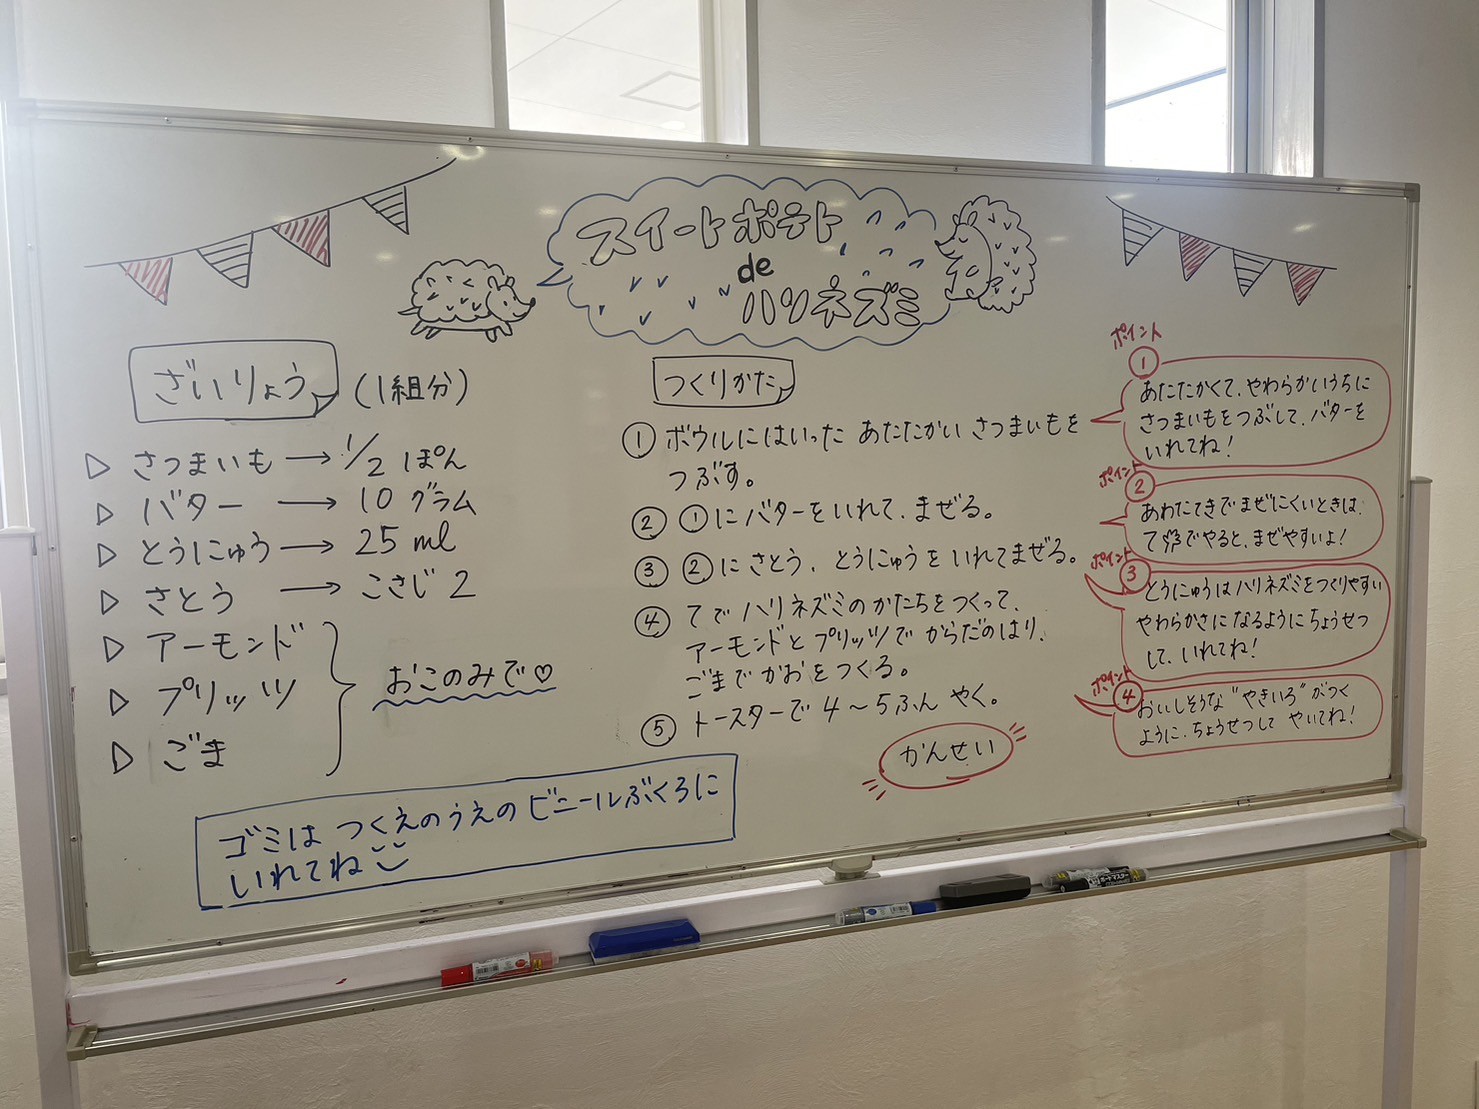 スイートポテト
de
ハリネズミ
ざいりょう (1組分)
▷ さつまいも → 1/2 ぽん
▷ バター → 10 グラム
▷ とうにゅう → 25 ml
▷ さとう → こさじ 2
▷ アーモンド
▷ プリッツ
▷ ごま
おこのみで♡
ゴミは つくえのうえの ビニールぶくろに
いれてね
つくりかた
① ボウルにはいった あたたかい さつまいもを
つぶす。
② ①にバターをいれて、まぜる。
③ ②にさとう、とうにゅうを いれてまぜる。
④ てで ハリネズミの かたちをつくって、
アーモンドと プリッツで からだのはり、
ごまでかおをつくる。
⑤ トースターで 4〜5ふん やく。
かんせい
ポイント
①
あたたかくて、やわらかいうちに
さつまいもをつぶして、バターを
いれてね!
ポイント
②
あわたてきで まぜにくいときは、
てでやると、まぜやすいよ!
ポイント
③
とうにゅうはハリネズミをつくりやすい
やわらかさになるようにちょうせつ
して、いれてね!
ポイント
④
おいしそうな "やきいろ" がつく
ように、ちょうせつして やいてね!
ボードマスター